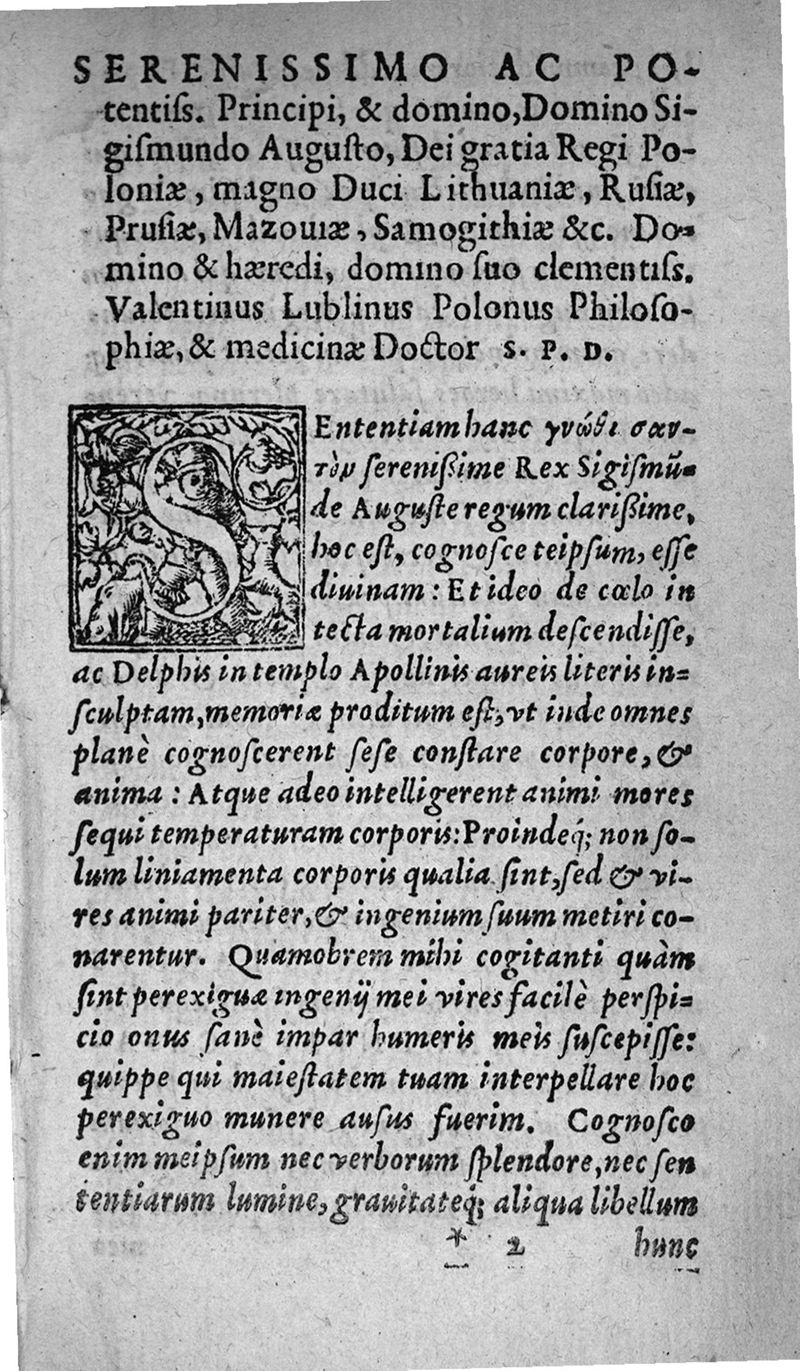 SERENISSIMO AC PO-
tentiſſ. Principi, & domino, Domino Si-
giſmundo Auguſto, Dei gratia Regi Po-
loniæ, magno Duci Lithuaniæ, Ruſiæ,
Pruſiæ, Mazouiæ, Samogithiæ &c. Do-
mino & hæredi, domino ſuo clementiſſ.
Valentinus Lublinus Polonus Philoſo-
phiæ, & medicinæ Doctor S. P. D.
SEntentiam hanc γνῶθι σαυ-
τὸν ſereniſſime Rex Sigiſmū-
de Auguſte regum clariſſime,
hoc eſt, cognoſce teipſum, eſſe
diuinam: Et ideo de cœlo in
tecta mortalium deſcendiſſe,
ac Delphis in templo Apollinis aureis literis in-
ſculptam, memoriæ proditum eſt, vt inde omnes
planè cognoſcerent ſeſe conſtare corpore, &
anima: Atque adeo intelligerent animi mores
ſequi temperaturam corporis: Proindeq́; non ſo-
lum liniamenta corporis qualia ſint, ſed & vi-
res animi pariter, & ingenium ſuum metiri co-
narentur. Quamobrem mihi cogitanti quàm
ſint perexiguæ ingenij mei vires facilè perſpi-
cio onus ſanè impar humeris meis ſuſcepiſſe:
quippe qui maieſtatem tuam interpellare hoc
perexiguo munere auſus fuerim. Cognoſco
enim meipſum nec verborum ſplendore, nec ſen
tentiarum lumine, grauitateq́; aliqua libellum
* 2 hunc